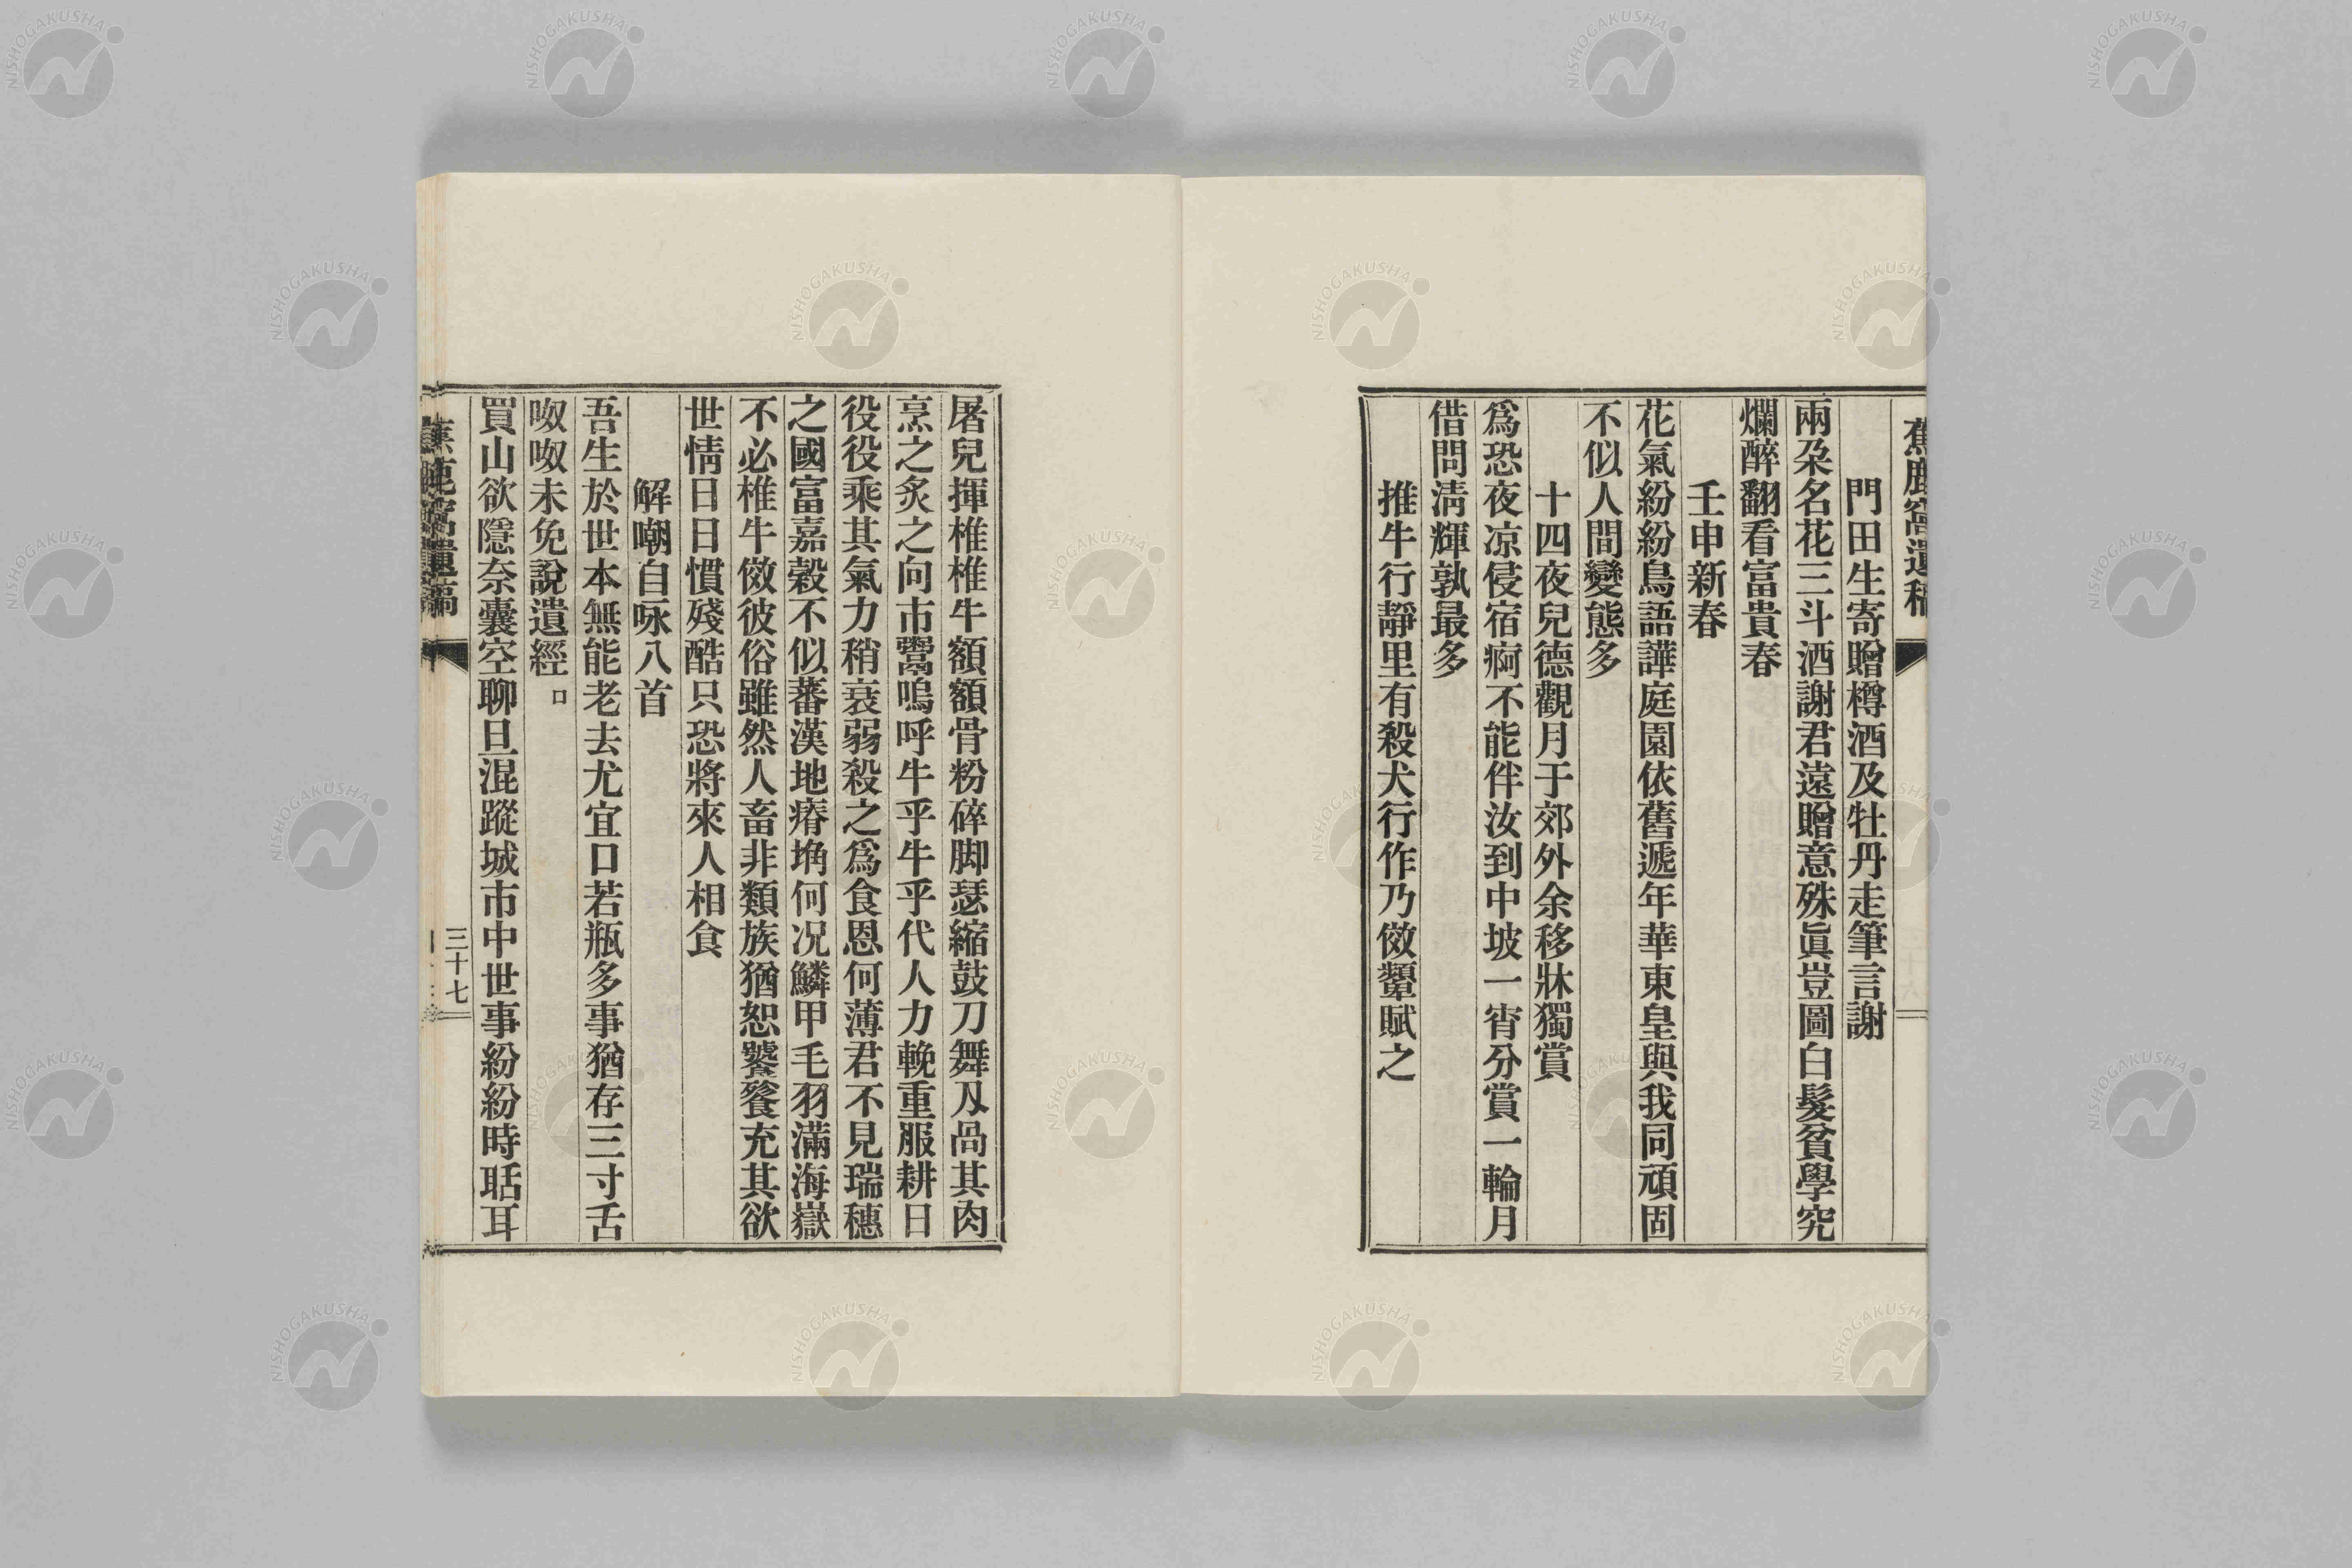 蕉鹿窩遺稿
門田生寄贈樽酒及牡丹走筆言謝
兩朶名花三斗酒謝君遠贈意殊眞豈圖白髮貧學究
爛醉翻看富貴春
壬申新春
花氣紛紛鳥語譁庭園依舊遞年華東皇與我同頑固
不似人間變態多
十四夜兒德觀月于郊外余移牀獨賞
爲恐夜凉侵宿痾不能伴汝到中坡一宵分賞一輪月
借問淸輝孰最多
推牛行靜里有殺犬行作乃傚顰賦之
屠兒揮椎椎牛額額骨粉碎脚瑟縮鼓刀舞刄咼其肉
烹之炙之向市鬻嗚呼牛乎牛乎代人力輓重服耕日
役役乘其氣力稍衰弱殺之爲食恩何薄君不見瑞穗
之國富嘉穀不似蕃漢地瘠埆何况鱗甲毛羽滿海嶽
不必椎牛傚彼俗雖然人畜非類族猶恕饕餮充其欲
世情日日慣殘酷只恐將來人相食
解嘲自咏八首
吾生於世本無能老去尤宜口若瓶多事猶存三寸舌
呶呶未免說遺經。
買山欲隱奈囊空聊且混蹤城市中世事紛紛時聒耳
蕉鹿窩遺稿
三十七
NISHOGAKUSHA